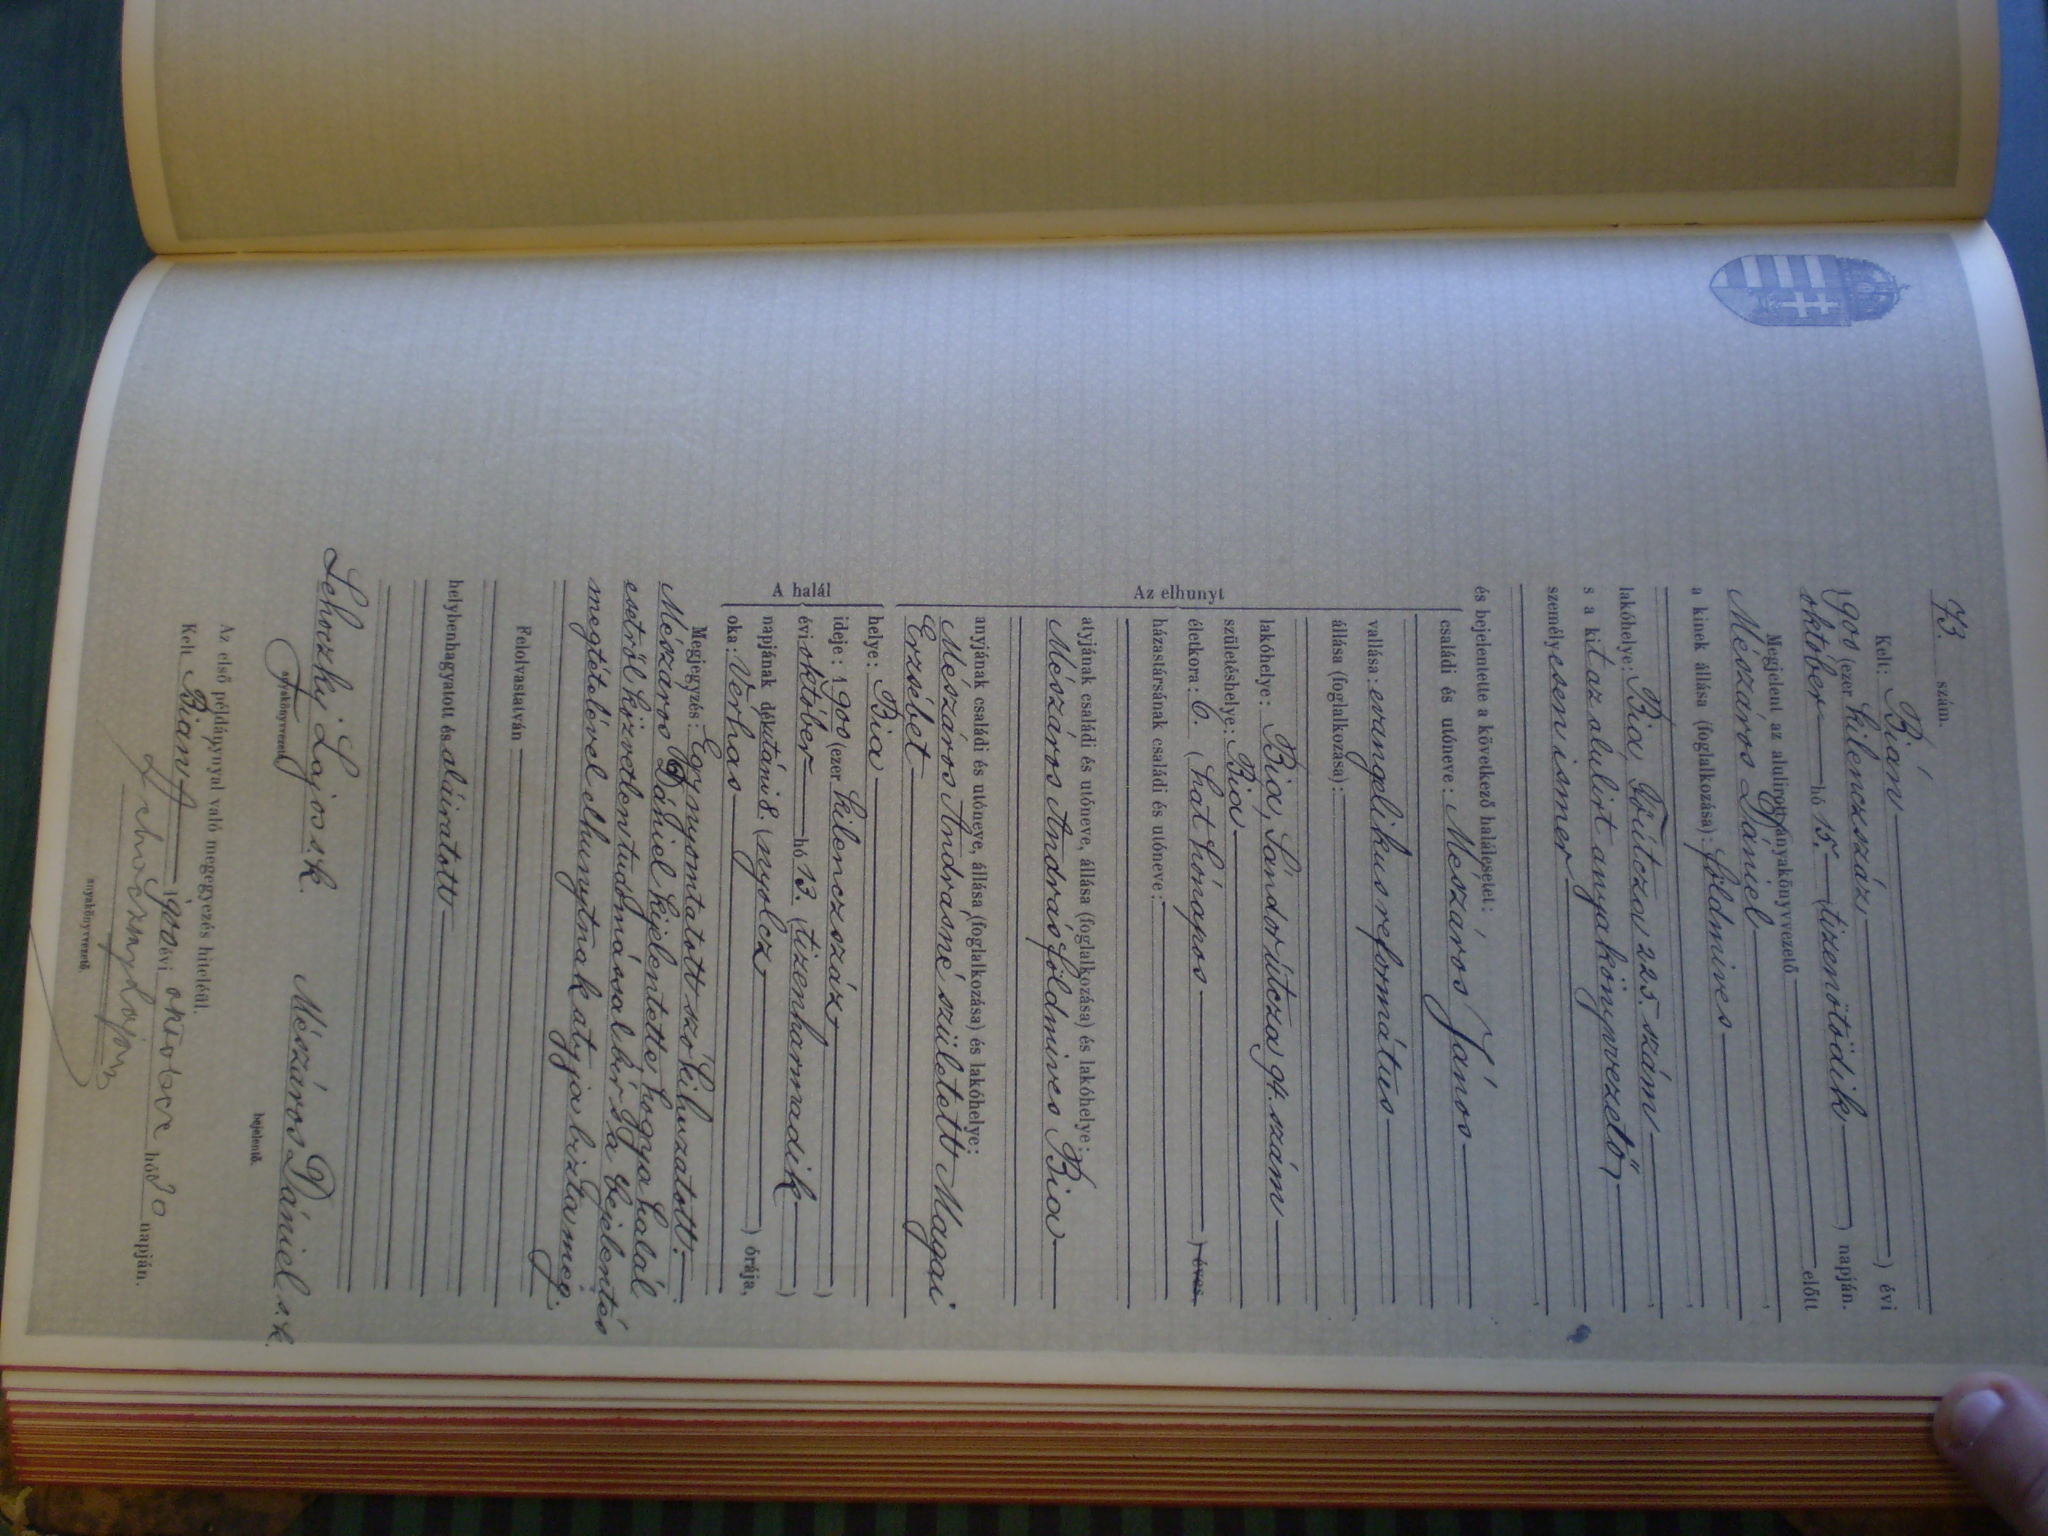 73. szám.
Kelt: Bián
1900 (ezer kilenczszáz) évi
október hó 15. (tizenötödik) napján.
Megjelent az alulirott anyakönyvvezető előtt
Mészáros Dániel,
a kinek állása (foglalkozása): földmives
lakóhelye: Bia, Főútcza, 225 szám
s a kit az alulirt anyakönyvvezető,
személyesen ismer
és bejelentette a következő halálesetet:
Az elhunyt
családi és utóneve: Meszáros János
vallása: evangelikus református
állása (foglalkozása):
lakóhelye: Bia, Sándorútcza 94. szám
születéshelye: Bia
életkora: 6. (hat hónapos) éves
házastársának családi és utóneve:
atyjának családi és utóneve, állása (foglalkozása) és lakóhelye:
Mészáros András földmives Bia
anyjának családi és utóneve, állása (foglalkozása) és lakóhelye:
Mészáros Andrasné született Magai
Erzsébet
A halál
helye: Bia
ideje: 1900 (ezer kilenczszáz)
évi október hó 13. (tizenharmadik)
napjának délutáni 8. (nyolcz) órája,
oka: Vérhas
Megjegyzés: Egy nyomtatott szó kihuzatott.
Mészáros Dániel kijelentette, hogy a halál
esetről közvetlen tudomással bír s a bejelentés
megtételével elhunytnak atyja bizta meg.
Felolvastatván
helybenhagyatott és aláiratott
Lehoczky Lajos s. k.
anyakönyvvezető.
Mészáros Dániel s. k.
bejelentő.
Az első példánynyal való megegyezés hiteléül.
Kelt Bian 1900 évi október hó 30 napján.
Lehoczky Lajos
anyakönyvvezető.